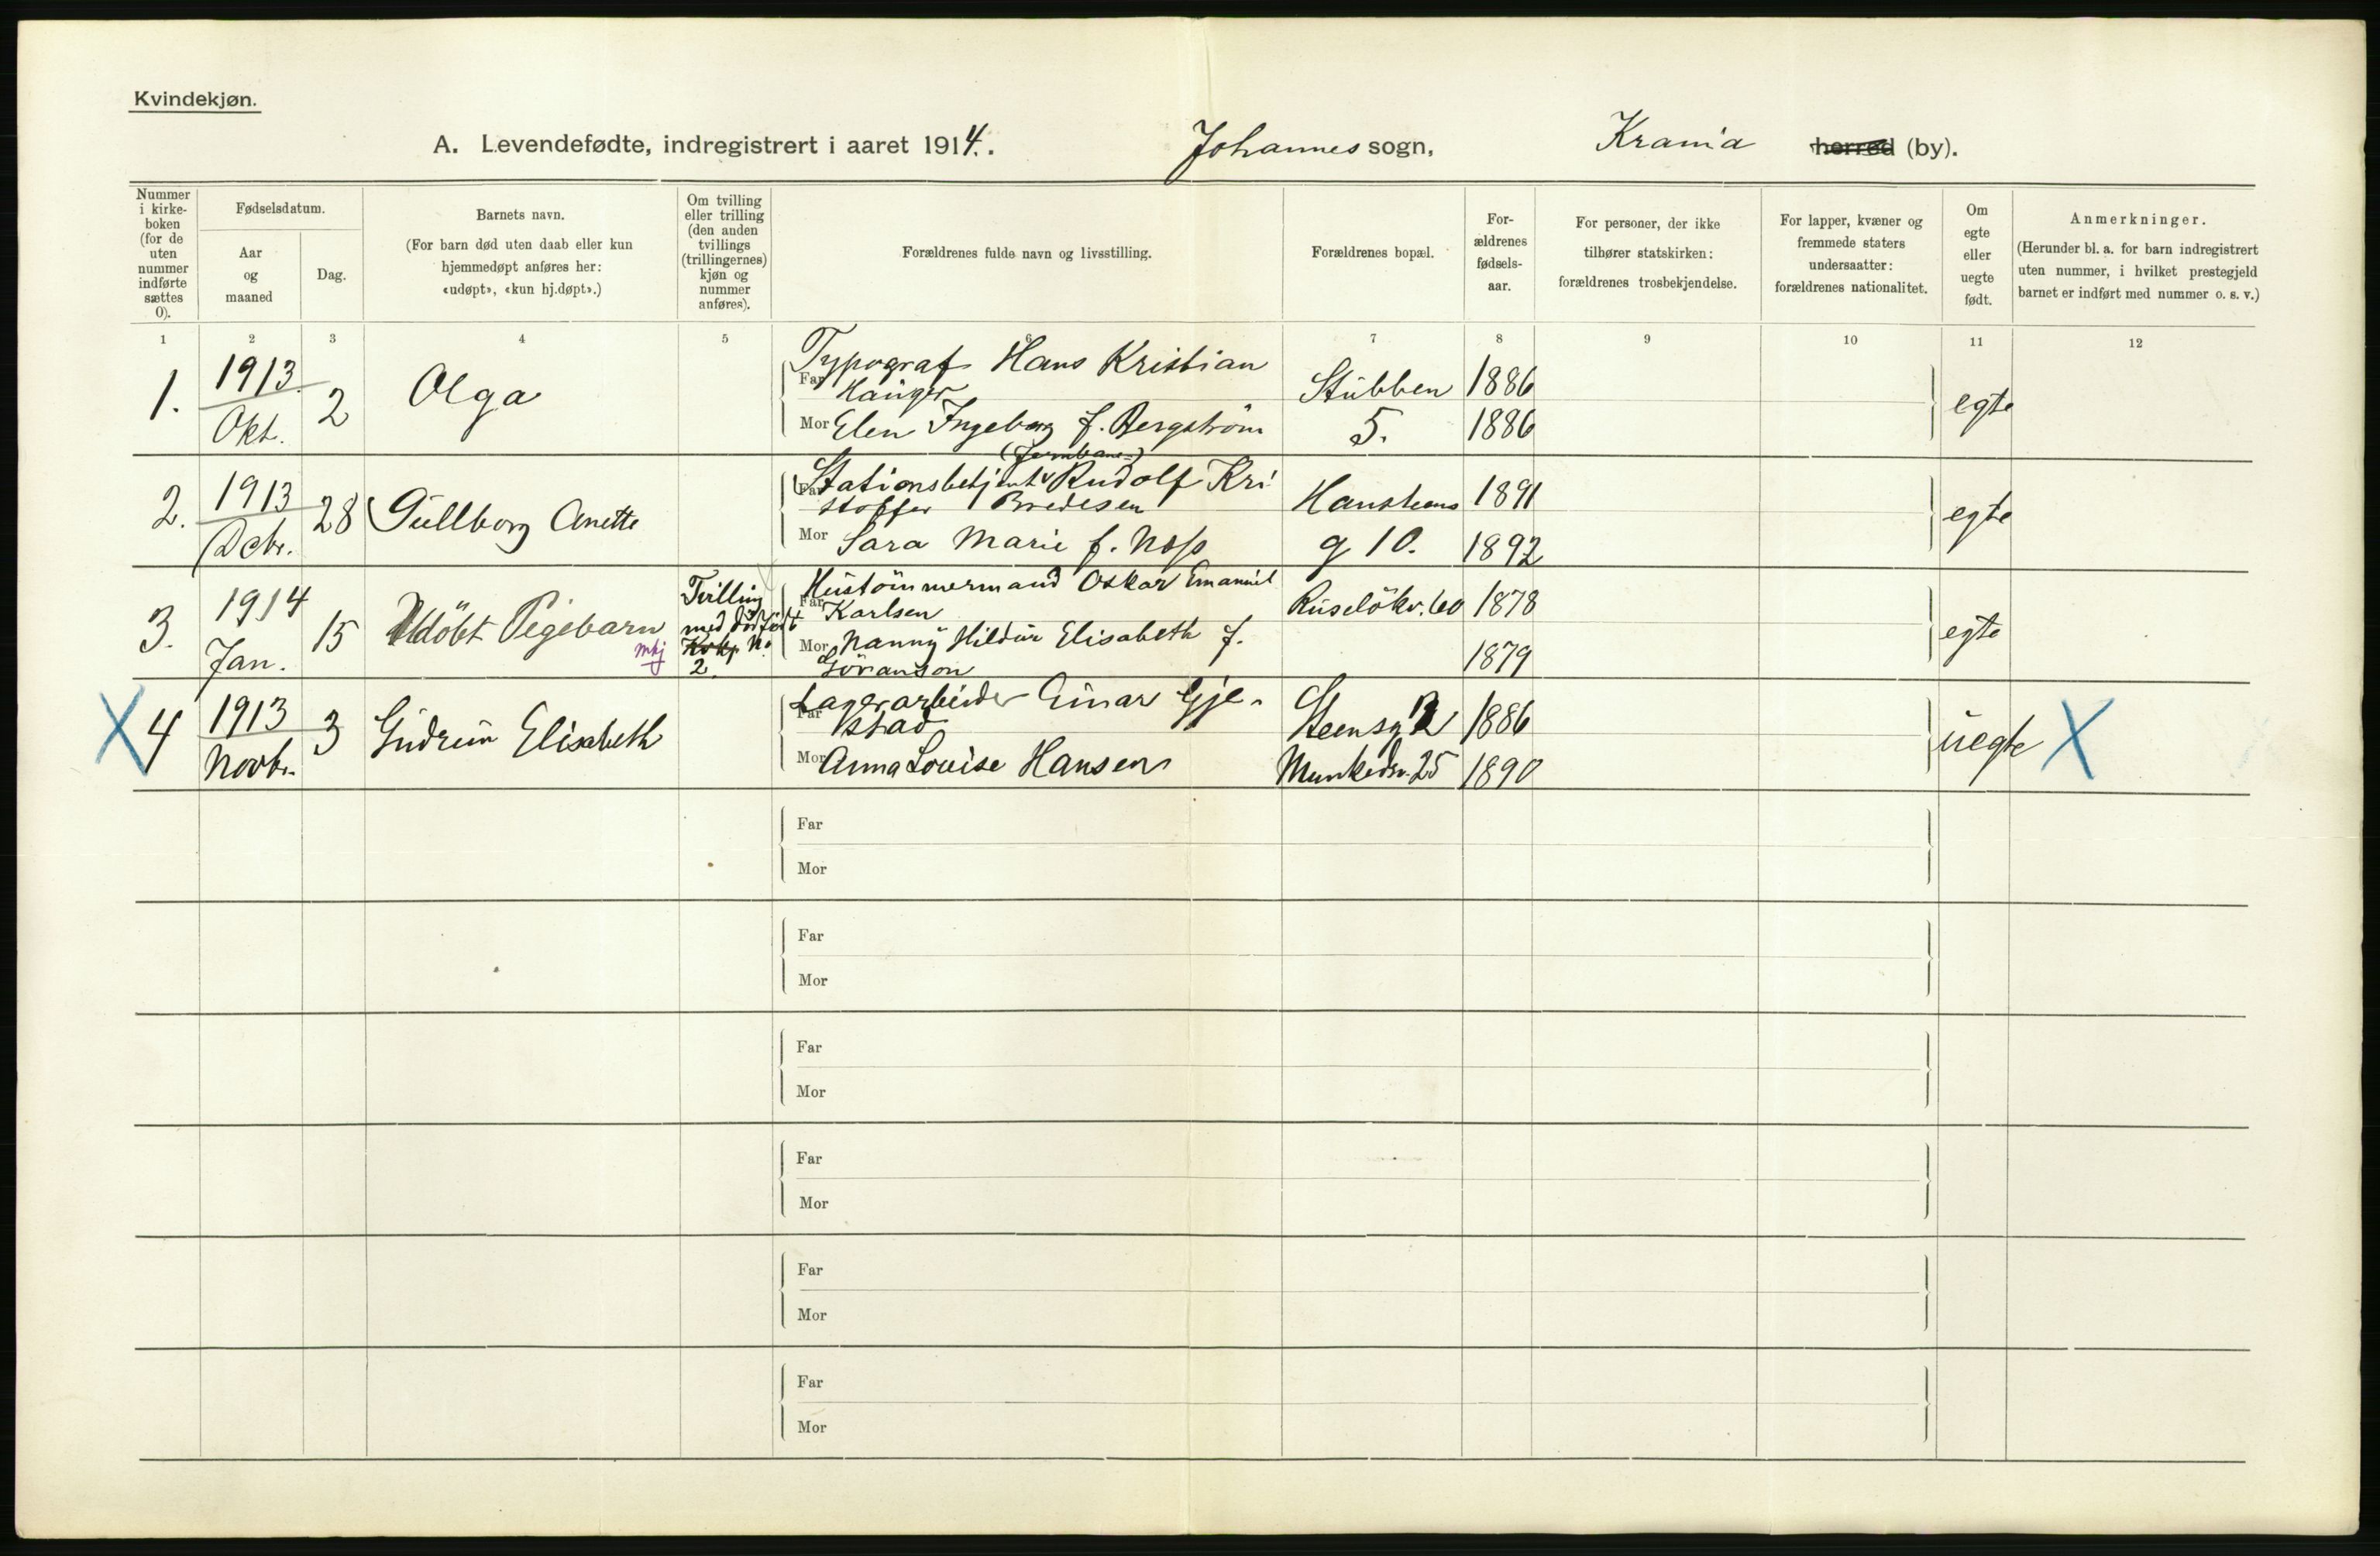 Kvindekjøn.
A. Levendefødte, indregistrert i aaret 1914.
Johannes sogn, Krania herred (by).
Nummer i kirkeboken (for de uten nummer indførte sættes 0).
Fødselsdatum.
Aar og maaned
Dag.
Barnets navn.
(For barn død uten daab eller kun hjemmedøpt anføres her: «udøpt», «kun hj.døpt».)
Om tvilling eller trilling (den anden tvillings (trillingernes) kjøn og nummer anføres).
Forældrenes fulde navn og livsstilling.
Forældrenes bopæl.
Forældrenes fødselsaar.
For personer, der ikke tilhører statskirken: forældrenes trosbekjendelse.
For lapper, kvæner og fremmede staters undersaatter: forældrenes nationalitet.
Om egte eller uegte født.
Anmerkninger.
(Herunder bl. a. for barn indregistrert uten nummer, i hvilket prestegjeld barnet er indført med nummer o. s. v.)
1 2 3 4 5 6 7 8 9 10 11 12
1. 1913 Okt. 2 Olga
Far Typograf Hans Kristian
Stubben 1886
Mor Elen Ingeborg f. Bergström 5. 1886
egte
2. 1913 Dcbr. 28 Gullborg Anette
(Jernbane-)
Far Stationsbetjent Rudolf Kri
stoffer Bredesen
1891
Mor Sara Marie f. Noss
g 10. 1892
egte
3. 1914 Jan. 15 Udöbt Pigebarn
mkj
Tvilling
med dödfödt
Kvkj. No
2.
Far Hustömmermand Oskar Emanuel
Karlsen
Ruselökv. 60 1878
Mor Nanny Hildur Elisabeth f.
Göranson
1879
egte
X 4 1913 Novbr. 3 Gudrun Elisabeth
Far Lagerarbeider Einar Gje-
stad
Steensg 1886
Mor Anna Louise Hansen
Munkedsv. 25 1890
uegte X
Far
Mor
Far
Mor
Far
Mor
Far
Mor
Far
Mor
Far
Mor